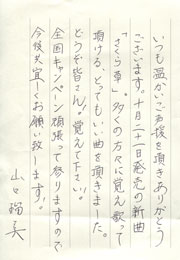 いつも温かいご声援を頂きありがとう
ございます。十月二十一日発売の新曲
「さくら草」多くの方々に覚え歌って
頂ける、とってもいい曲を頂きました。
どうぞ皆さん!覚えて下さい!
全国キャンペーン頑張って参りますので
今後共宜しくお願い致します。
山口瑠美